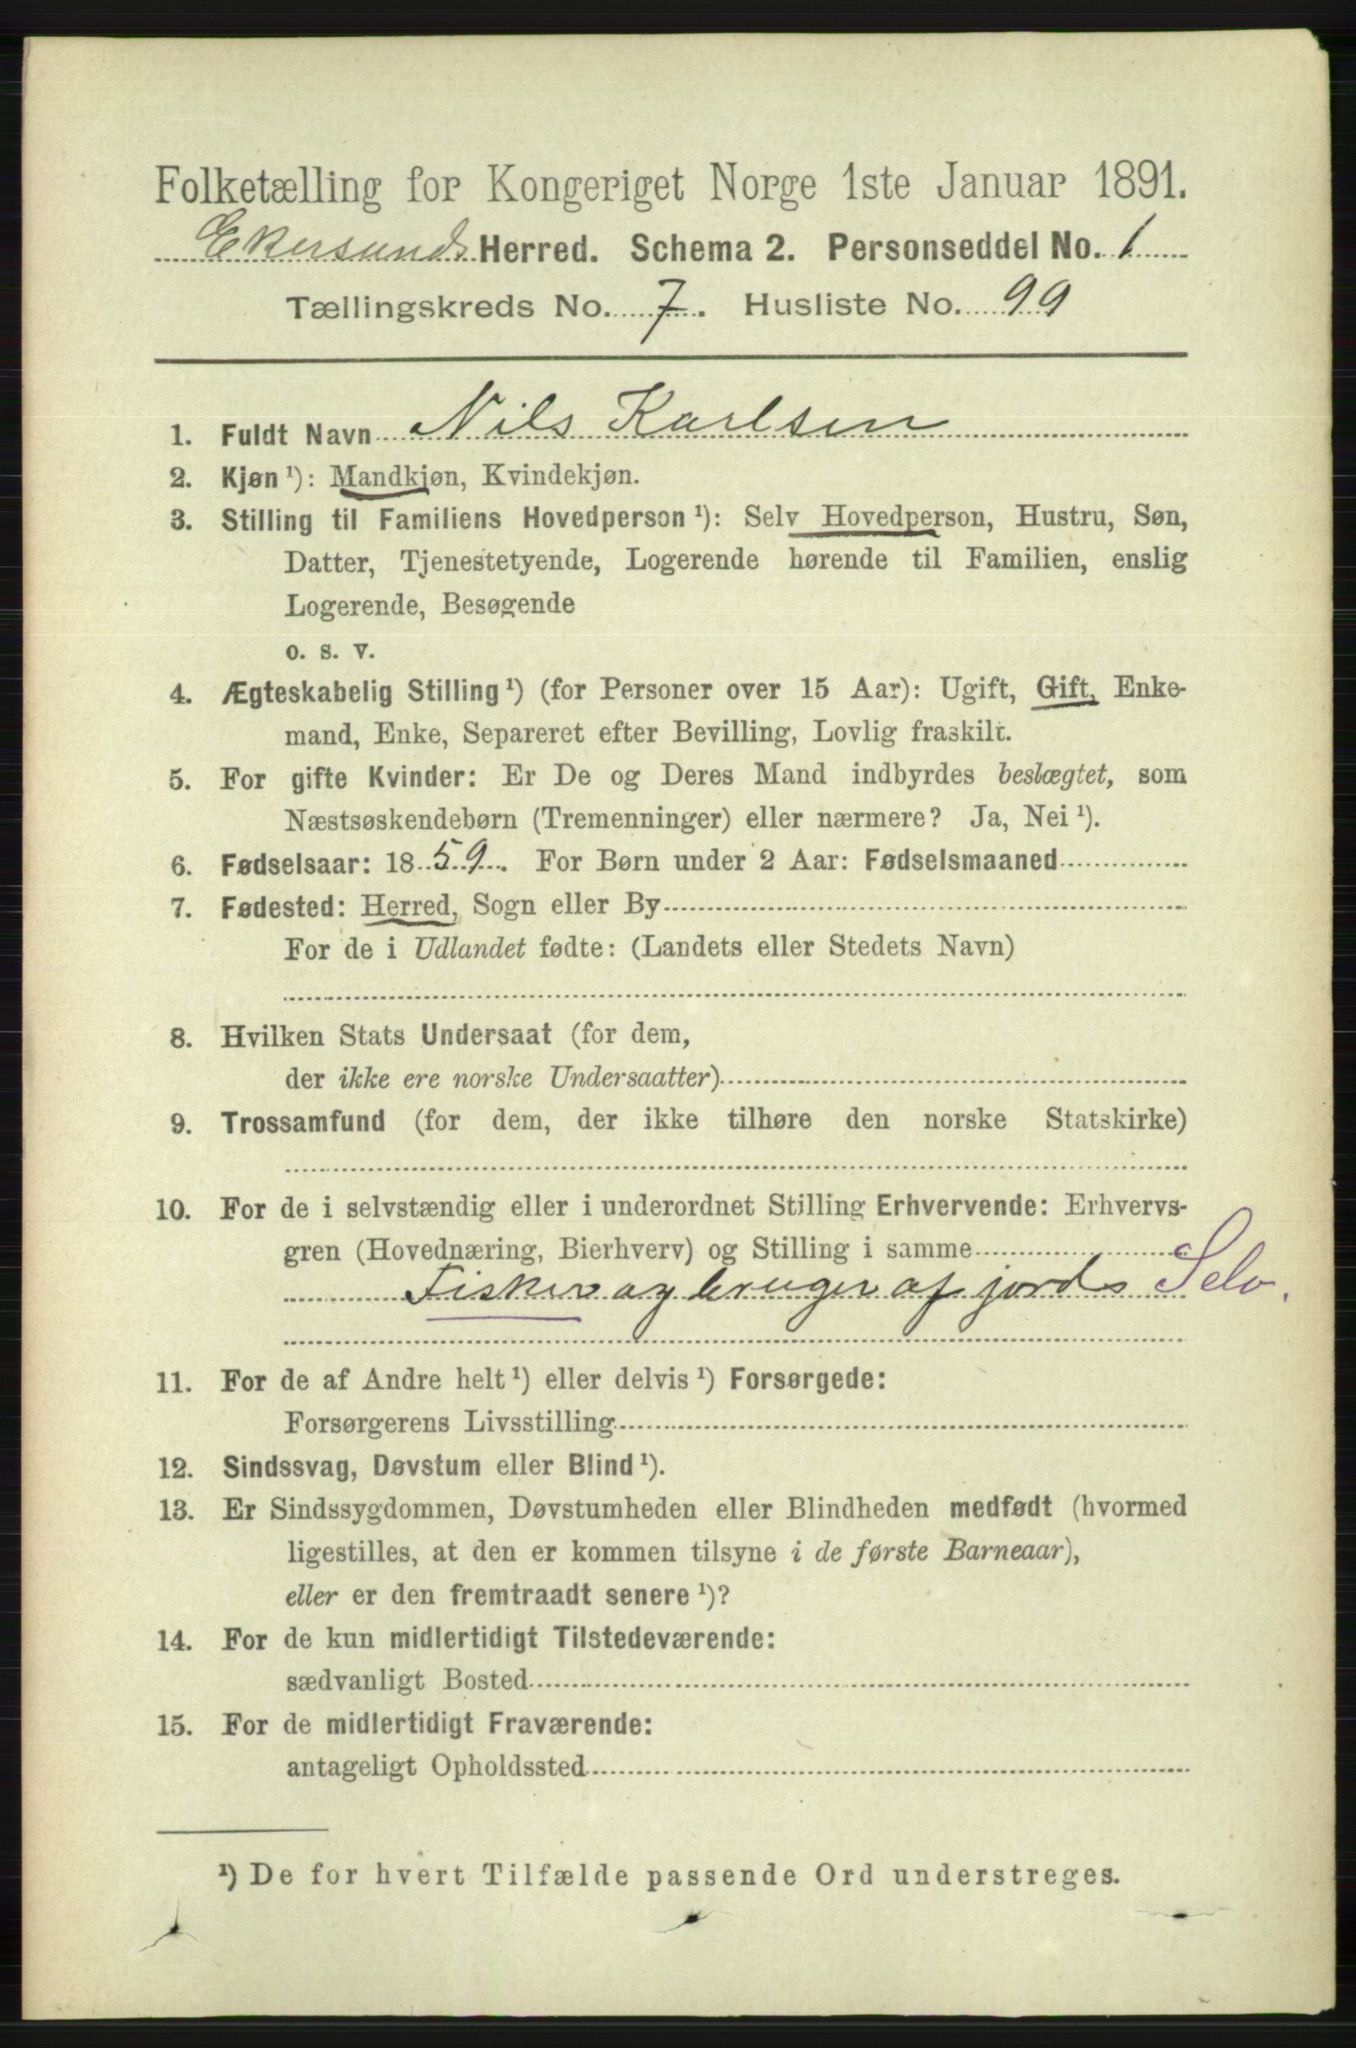 Folketælling for Kongeriget Norge 1ste Januar 1891.
Ekersunds Herred. Schema 2. Personseddel No. 1
Tællingskreds No. 7. Husliste No. 99
1. Fuldt Navn Nils Karlsen
2. Kjøn ¹): Mandkjøn, Kvindekjøn.
3. Stilling til Familiens Hovedperson ¹): Selv Hovedperson, Hustru, Søn,
Datter, Tjenestetyende, Logerende hørende til Familien, enslig
Logerende, Besøgende
o. s. v.
4. Ægteskabelig Stilling ¹) (for Personer over 15 Aar): Ugift, Gift, Enke-
mand, Enke, Separeret efter Bevilling, Lovlig fraskilt.
5. For gifte Kvinder: Er De og Deres Mand indbyrdes beslægtet, som
Næstsøskendebørn (Tremenninger) eller nærmere? Ja, Nei ¹).
6. Fødselsaar: 1859. For Børn under 2 Aar: Fødselsmaaned
7. Fødested: Herred, Sogn eller By
For de i Udlandet fødte: (Landets eller Stedets Navn)
8. Hvilken Stats Undersaat (for dem,
der ikke ere norske Undersaatter)
9. Trossamfund (for dem, der ikke tilhøre den norske Statskirke)
10. For de i selvstændig eller i underordnet Stilling Erhvervende: Erhvervs-
gren (Hovednæring, Bierhverv) og Stilling i samme
Fisker og bruger af jords Selv.
11. For de af Andre helt ¹) eller delvis ¹) Forsørgede:
Forsørgerens Livsstilling
12. Sindssvag, Døvstum eller Blind ¹).
13. Er Sindssygdommen, Døvstumheden eller Blindheden medfødt (hvormed
ligestilles, at den er kommen tilsyne i de første Barneaar),
eller er den fremtraadt senere ¹)?
14. For de kun midlertidigt Tilstedeværende:
sædvanligt Bosted
15. For de midlertidigt Fraværende:
antageligt Opholdssted
¹) De for hvert Tilfælde passende Ord understreges.